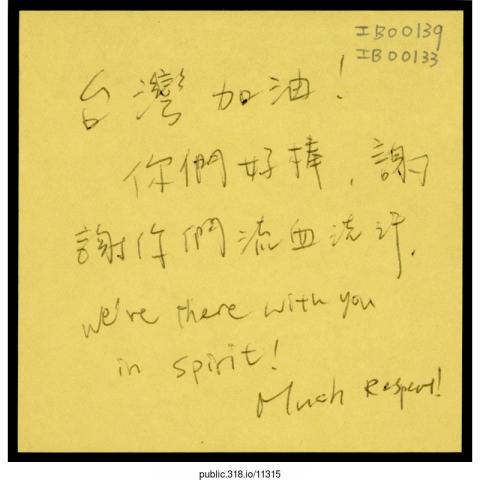 IB00139
IB00133
台灣加油!
你們好棒,謝
謝你們流血流汗.
We're there with you
in spirit!
Much Respect!
public.318.io/11315